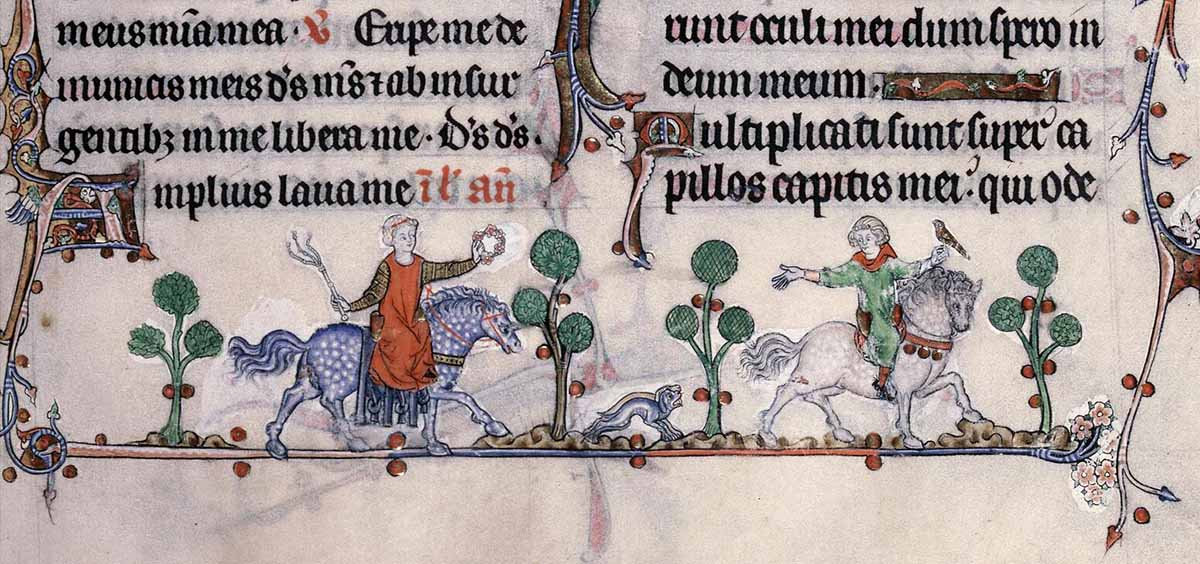 meus mīa mea · ℣ Eripe me de
inimicis meis d̄s m̄s ⁊ ab insur
gentibꝫ in me libera me · D̄s d̄s ·
Amplius laua me ī l' an̄
runt oculi mei dum spero in
deum meum ·
Multiplicati sunt super ca
pillos capitis mei · qui ode